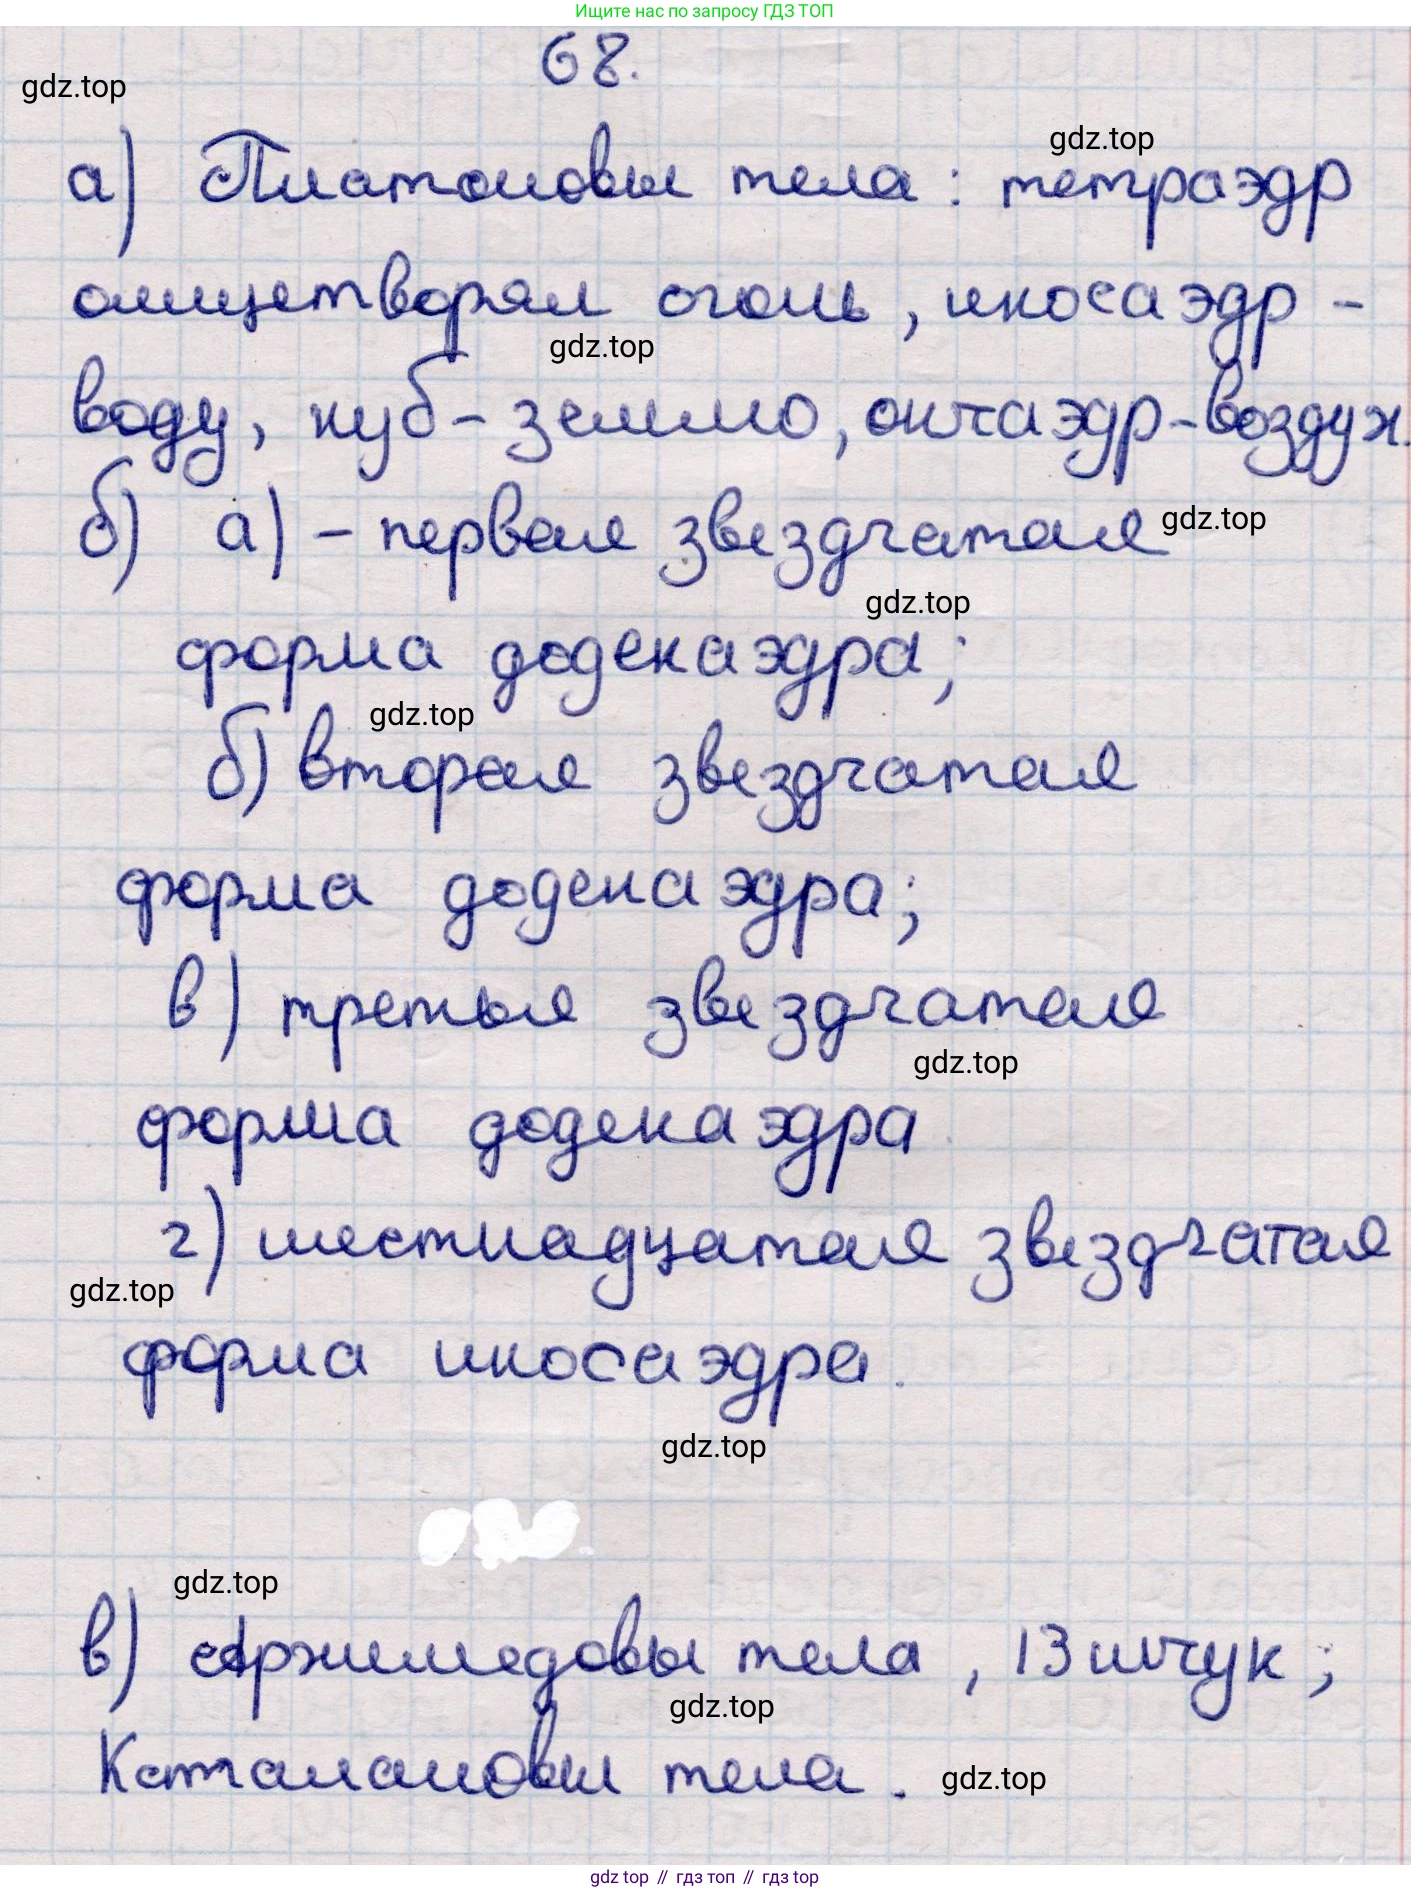 Ищите нас по запросу ГДЗ ТОП
68.
gdz.top
gdz.top
а) Платоновы тела: тетраэдр
олицетворял огонь, икосаэдр -
gdz.top
воду, куб - землю, октаэдр - воздух.
б) а) - первая звездчатая
gdz.top
gdz.top
форма додекаэдра;
gdz.top
б) вторая звездчатая
форма додекаэдра;
в) третья звездчатая
gdz.top
форма додекаэдра
г) шестнадцатая звездчатая
gdz.top
форма икосаэдра.
gdz.top
gdz.top
в) Архимедовы тела, 13 штук;
gdz.top
Каталановы тела.
gdz.top
gdz top // гдз топ // гдз top